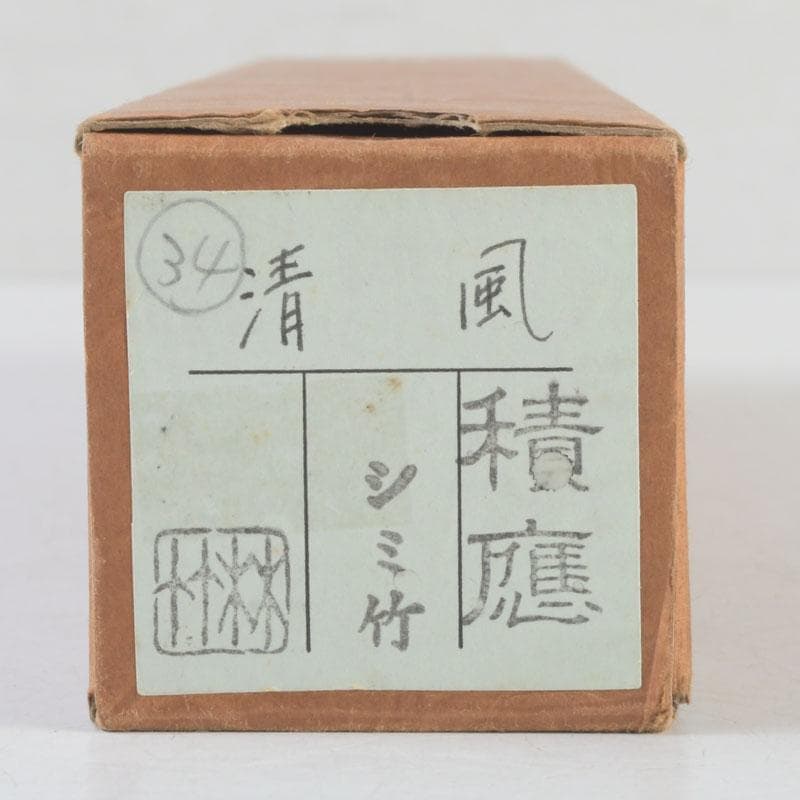 34
清 風
積應
シミ竹
竹林